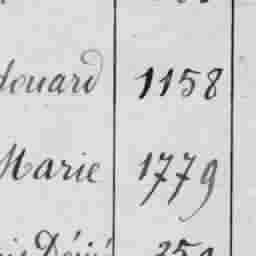 douard 1158
Marie 1779